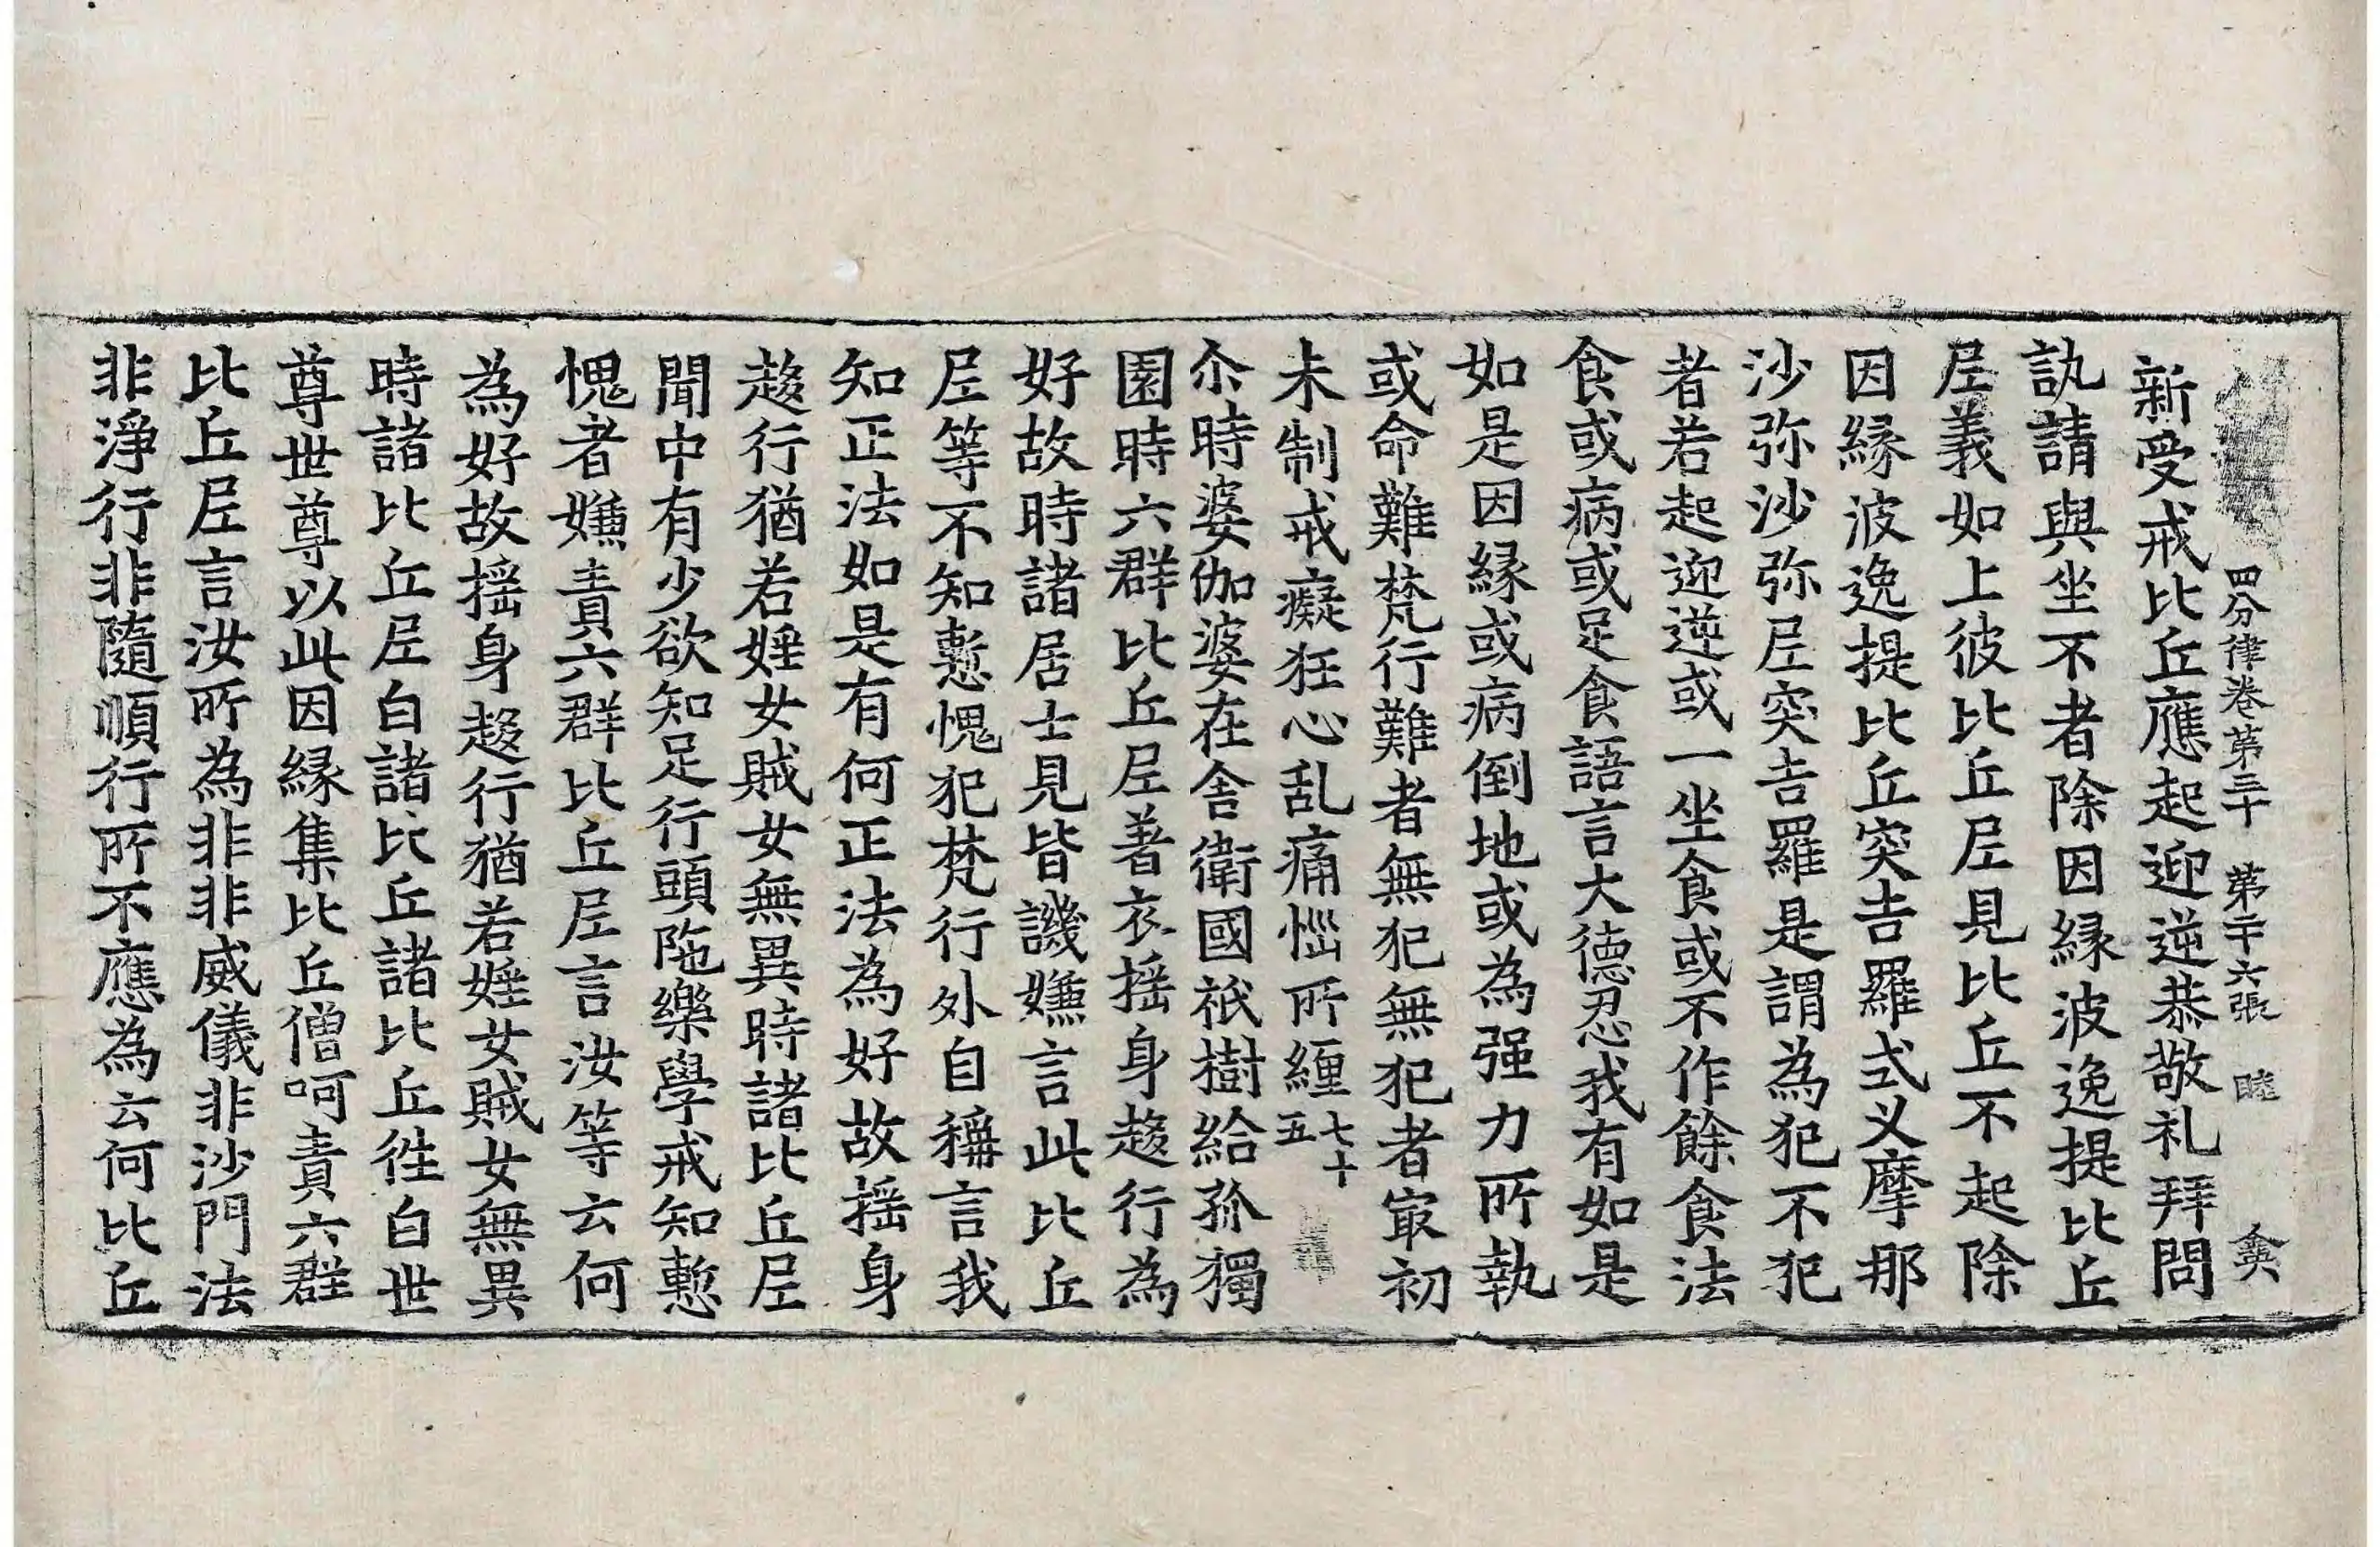 四分律卷第三十 第二十六張 睦 奠
新受戒比丘應起迎逆恭敬礼拜問
訊請與坐不者除因縁波逸提比丘
尼義如上彼比丘尼見比丘不起除
因縁波逸提比丘突吉羅式叉摩那
沙弥沙弥尼突吉羅是謂為犯不犯
者若起迎逆或一坐食或不作餘食法
食或病或足食語言大德忍我有如是
如是因縁或病倒地或為强力所執
或命難梵行難者無犯無犯者㝡初
未制戒癡狂心乱痛惱所纏七十五
尒時婆伽婆在舎衛國祇樹給孤獨
園時六群比丘尼著衣揺身趍行為
好故時諸居士見皆譏嫌言此比丘
尼等不知慙愧犯梵行外自稱言我
知正法如是有何正法為好故揺身
趍行猶若婬女賊女無異時諸比丘尼
聞中有少欲知足行頭陁樂學戒知慙
愧者嫌責六群比丘尼言汝等云何
為好故揺身趍行猶若婬女賊女無異
時諸比丘尼白諸比丘諸比丘徃白世
尊世尊以此因縁集比丘僧呵責六群
比丘尼言汝所為非非威儀非沙門法
非淨行非隨順行所不應為云何比丘